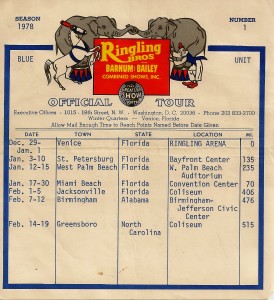 SEASON 1978
NUMBER 1
Ringling
BROS
BARNUM & BAILEY
COMBINED SHOWS, INC.
BLUE
UNIT
GREATEST
SHOW
OFFICIAL TOUR
Executive Offices - 1015 - 18th Street, N.W. - Washington, D. C. 20036 - Phone 202 833-2700
Winter Quarters - Venice, Florida
Allow Mail Enough Time to Reach Points Named Before Date Given
DATE TOWN STATE LOCATION MI.
Dec. 29- Venice Florida RINGLING ARENA 0
Jan. 1
Jan. 3-10 St. Petersburg Florida Bayfront Center 135
Jan. 12-15 West Palm Beach Florida W. Palm Beach 235
Auditorium
Jan. 17-30 Miami Beach Florida Convention Center 70
Feb. 1-5 Jacksonville Florida Coliseum 406
Feb. 7-12 Birmingham Alabama Birmingham- 476
Jefferson Civic
Center
Feb. 14-19 Greensboro North Coliseum 515
Carolina